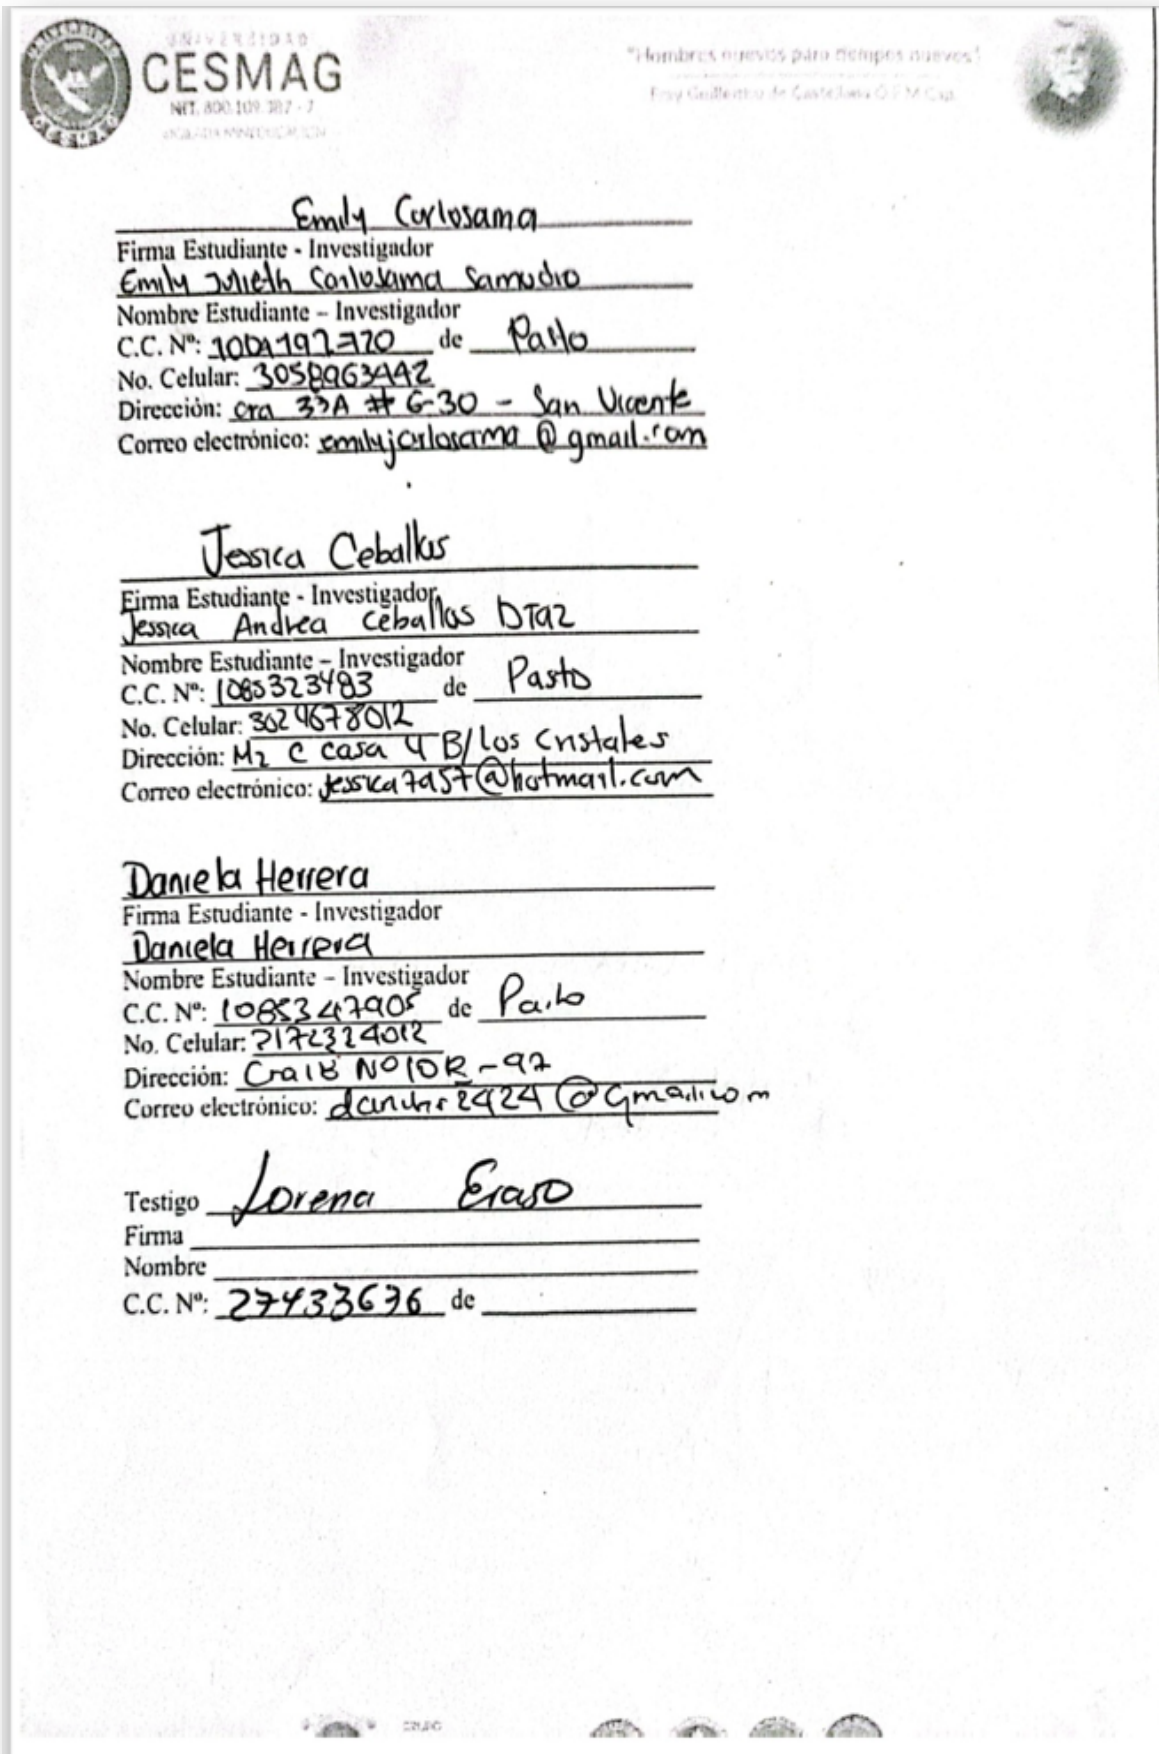 UNIVERSIDAD
CESMAG
NIT. 800.109.387 - 7
VIGILADA MINEDUCACIÓN
"Hombres nuevos para tiempos nuevos"
Fray Guillermo de Castellana O.F.M Cap.
Emily Carlosama
Firma Estudiante - Investigador
Emily Julieth Carlosama Samudio
Nombre Estudiante – Investigador
C.C. Nº: de Pasto
No. Celular: 3058963442
Dirección: cra 33A # 6-30 - San Vicente
Correo electrónico: emilyjcarlosama@gmail.com
Jessica Ceballos
Firma Estudiante - Investigador
Jessica Andrea Ceballos DIaz
Nombre Estudiante – Investigador
C.C. Nº: 1085323483 de Pasto
No. Celular: 3024678012
Dirección: Mz C casa 4 B/ los Cristales
Correo electrónico: jessica7957@hotmail.com
Daniela Herrera
Firma Estudiante - Investigador
Daniela Herrera
Nombre Estudiante – Investigador
C.C. Nº: 1085347905 de Pasto
No. Celular:
Dirección:
Correo electrónico:
Testigo Lorena Eraso
Firma
Nombre
C.C. Nº: 27433676 de